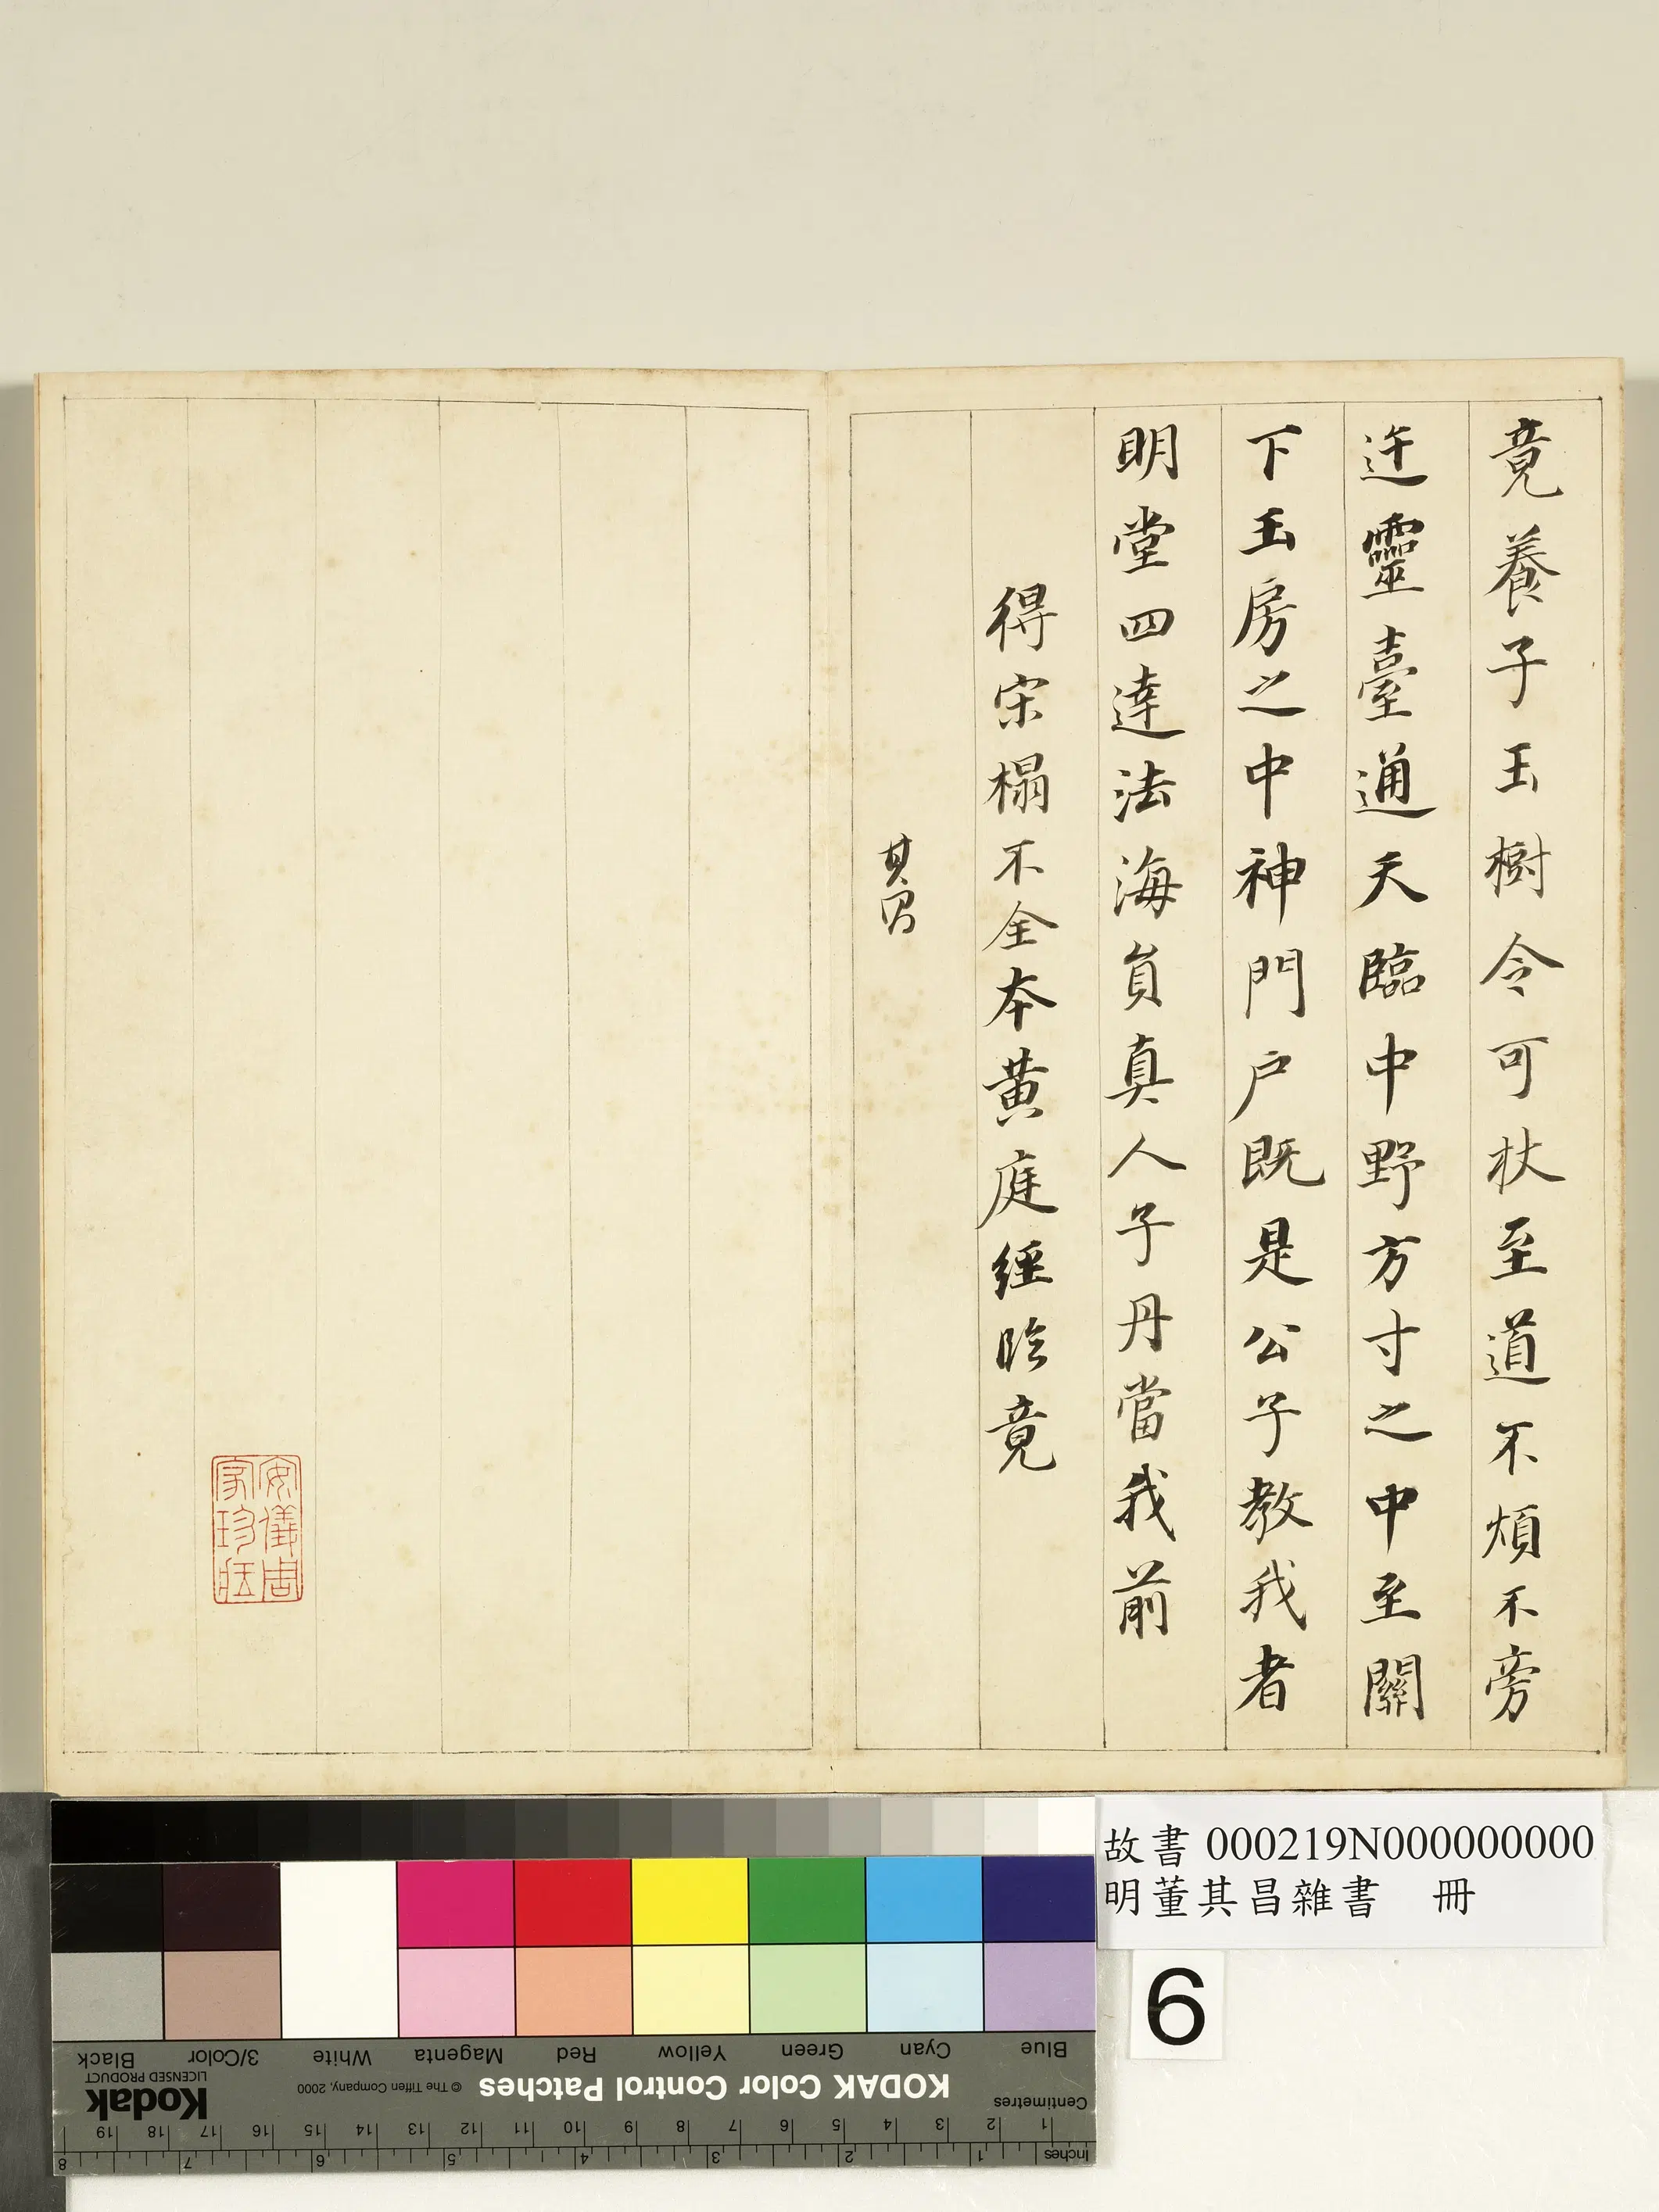 竟養子玉樹令可杖至道不煩不旁
迕靈臺通天臨中野方寸之中至關
下玉房之中神門戶既是公子教我者
明堂四達法海員真人子丹當我前
得宋榻不全本黃庭經臨竟
其昌
安儀周
家珍藏
故書 000219N000000000
明董其昌雜書 冊
6
Blue Cyan Green Yellow Red Magenta White 3/Color Black
KODAK Color Control Patches © The Tiffen Company, 2000 Kodak LICENSED PRODUCT
Centimetres 1 2 3 4 5 6 7 8 9 10 11 12 13 14 15 16 17 18 19
Inches 1 2 3 4 5 6 7 8